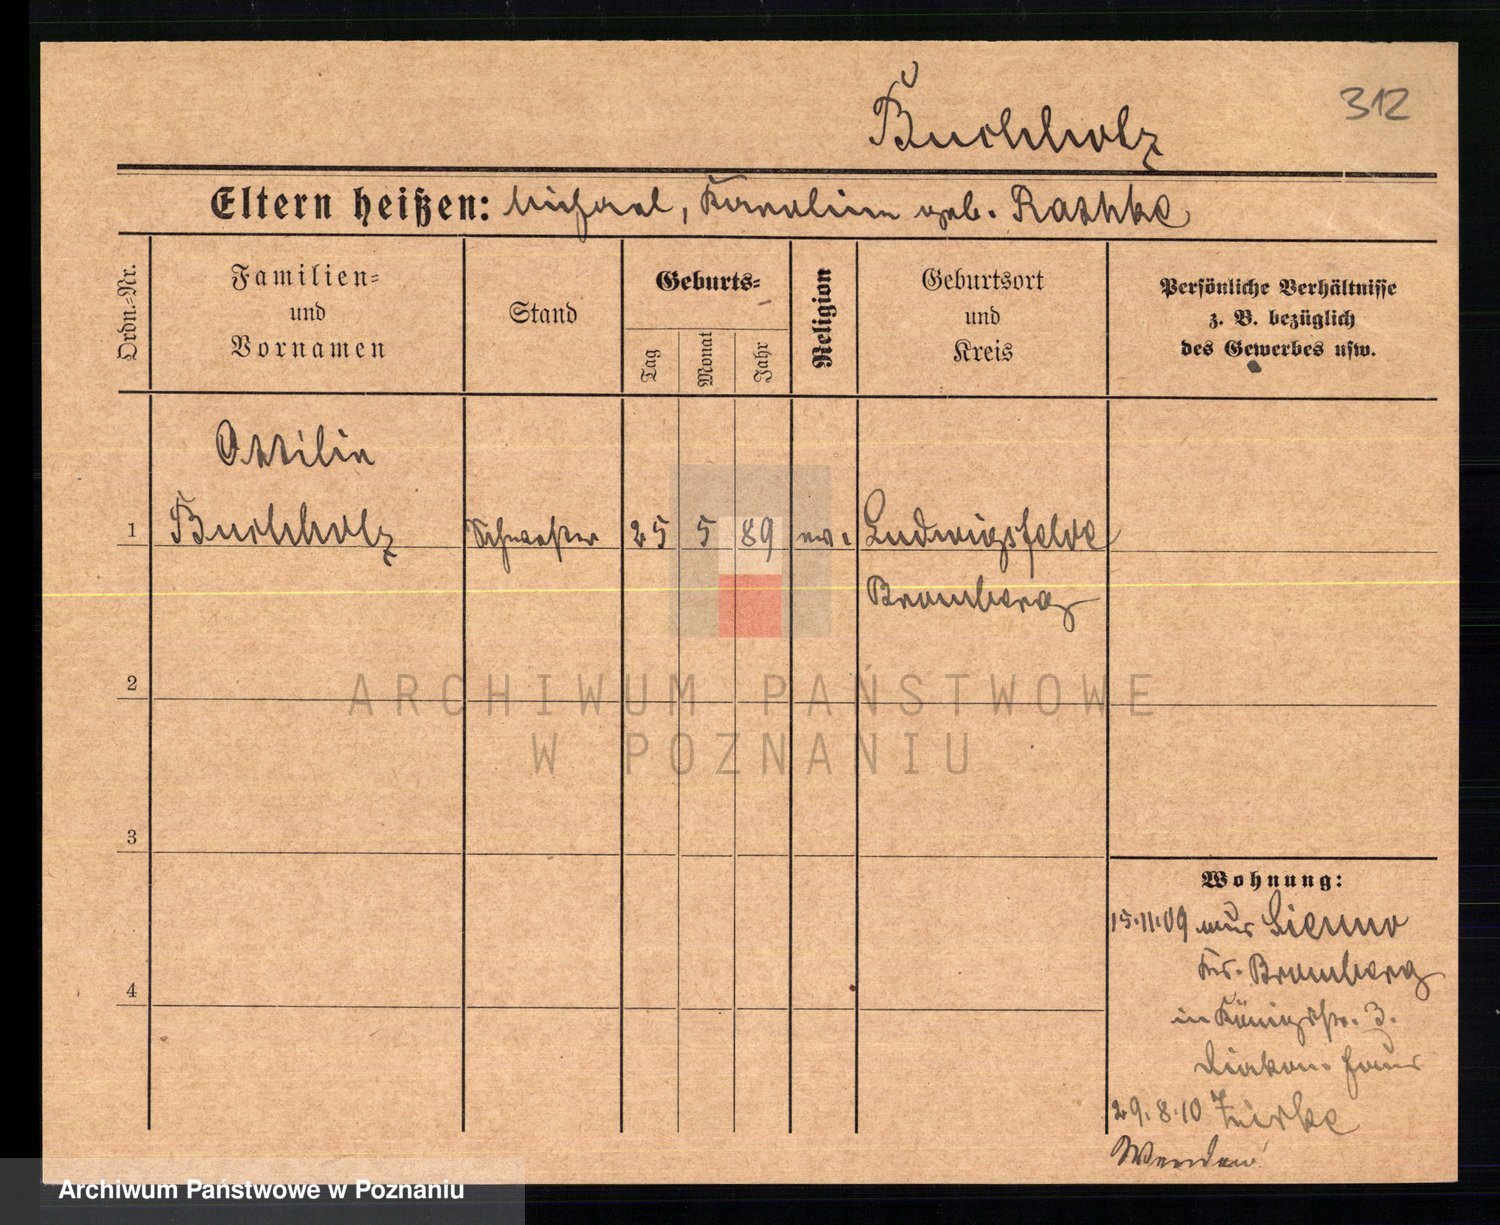 Buchholz
312
Eltern heißen: Michael, Karoline geb. Raschke
Ordn.-Nr.
Familien-
und
Vornamen
Stand
Geburts-
Tag
Monat
Jahr
Religion
Geburtsort
und
Kreis
Persönliche Verhältnisse
z. B. bezüglich
des Gewerbes usw.
Ottilie
1 Buchholz Schwester 25 5 89 ev. Ludwigsfelde
Bromberg
2
ARCHIWUM PAŃSTWOWE
W POZNANIU
3
4
Wohnung:
15.11.09 aus Sienno
Krs. Bromberg
in Königstr. 3.
Diakon. Haus
29.8.10 Zirke
Archiwum Państwowe w Poznaniu